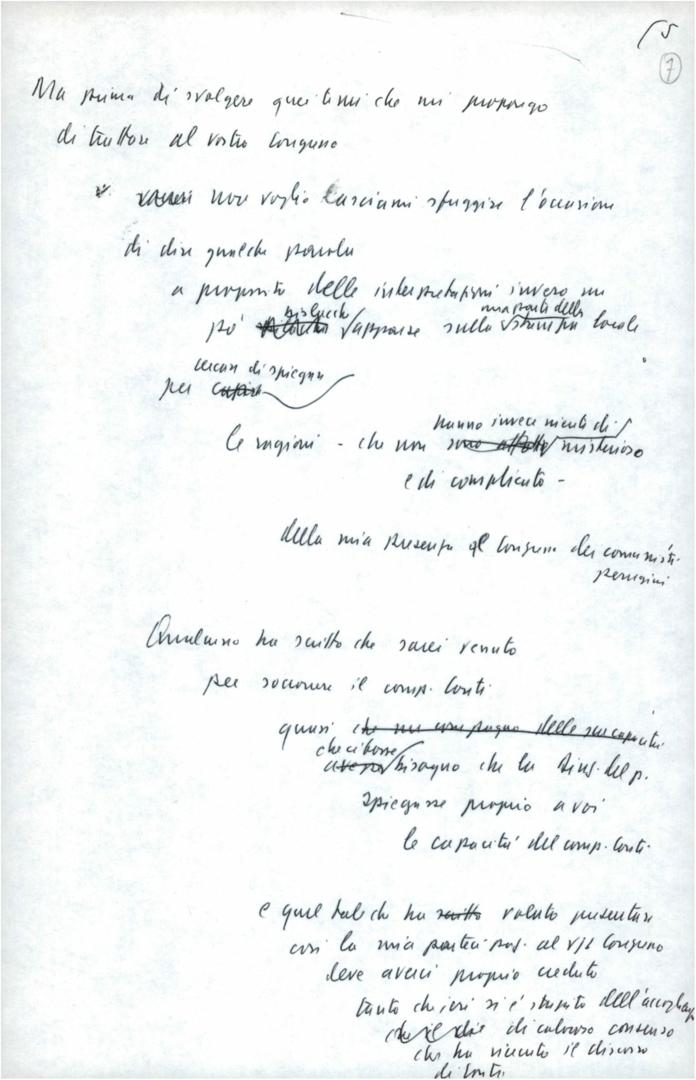 5
7
Ma prima di svolgere quei temi che mi propongo
di trattare al vostro Congresso
non voglio lasciarmi sfuggire l'occasione
di dire qualche parola
a proposito delle interpretazioni invero un
bislacche una parte della
po' apparse sulla stampa locale
cercare di spiegare
per capire
hanno invece niente di
le ragioni - che non sono affatto misterioso
e di complicato -
della mia presenza al Congresso dei comunisti
perugini
Qualcuno ha scritto che sarei venuto
per soccorrere il comp. Conti
quasi che un compagno delle sue capacità
che ci fosse
avesse bisogno che la Direz. del p.
spiegasse proprio a voi
le capacità del comp. Conti.
e quel tale che ha scritto voluto presentare
così la mia partecipaz. al vs/ Congresso
deve averci proprio creduto
tanto che ieri si è stupito dell'accoglienza
che di caloroso consenso
che ha ricevuto il discorso
di Conti